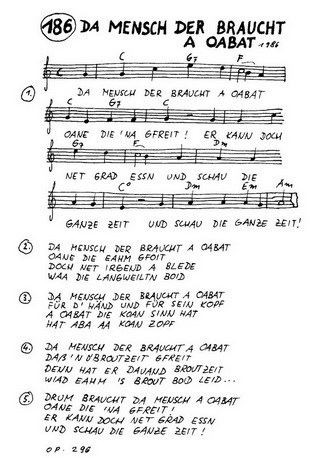 186 DA MENSCH DER BRAUCHT
A OABAT 1986
C G7 F
1. DA MENSCH DER BRAUCHT A OABAT
C G7 C
OANE DIE 'NA GFREIT! ER KANN DOCH
G7 F Dm
NET GRAD ESSN UND SCHAU DIE
C° Dm Em Am
GANZE ZEIT UND SCHAU DIE GANZE ZEIT!
2. DA MENSCH DER BRAUCHT A OABAT
OANE DIE EAHM GFOIT
DOCH NET IRGEND A BLEDE
WAA DIE LANGWEILTN BOID
3. DA MENSCH DER BRAUCHT A OABAT
FÜR D'HÄND UND FÜR SEIN KOPF
A OABAT DIE KOAN SINN HAT
HAT ABA AA KOAN ZOPF
4. DA MENSCH DER BRAUCHT A OABAT
DAß 'N D'BROUTZEIT GFREIT
DENN HAT ER DAUAND BROUTZEIT
WIAD EAHM 'S BROUT BOID LEID...
5. DRUM BRAUCHT DA MENSCH A OABAT
OANE DIE 'NA GFREIT!
ER KANN DOCH NET GRAD ESSN
UND SCHAU DIE GANZE ZEIT!
OP. 296